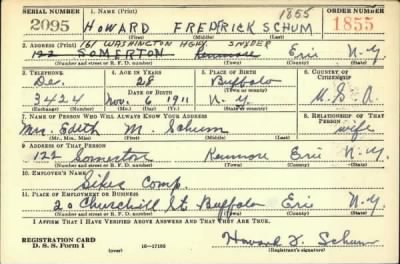 1855
SERIAL NUMBER 1. NAME (Print) ORDER NUMBER
2095 HOWARD FREDRICK SCHUM 1855
(First) (Middle) (Last)
161 WASHINGTON HGWY. SNYDER
2. ADDRESS (Print)
122 SOMERTON Kenmore Erie N-Y
(Number and street or R. F. D. number) (Town) (County) (State)
3. TELEPHONE 4. AGE IN YEARS 5. PLACE OF BIRTH 6. COUNTRY OF CITIZENSHIP
De. 28 Buffalo
DATE OF BIRTH (Town or county)
3424 Nov. 6 1911 N-Y U.S.A
(Exchange) (Number) (Mo.) (Day) (Yr.) (State or country)
7. NAME OF PERSON WHO WILL ALWAYS KNOW YOUR ADDRESS 8. RELATIONSHIP OF THAT PERSON
Mrs. Edith M. Schum wife
(Mr., Mrs., Miss) (First) (Middle) (Last)
9. ADDRESS OF THAT PERSON
122 Somerton Kenmore Erie N-Y
(Number and street or R. F. D. number) (Town) (County) (State)
10. EMPLOYER'S NAME
Sikes Comp.
11. PLACE OF EMPLOYMENT OR BUSINESS
20 Churchill St. Buffalo Erie N.Y.
(Number and street or R. F. D. number) (Town) (County) (State)
I AFFIRM THAT I HAVE VERIFIED ABOVE ANSWERS AND THAT THEY ARE TRUE.
REGISTRATION CARD
D. S. S. Form 1 (over) 16-17105 Howard F. Schum
(Registrant's signature)